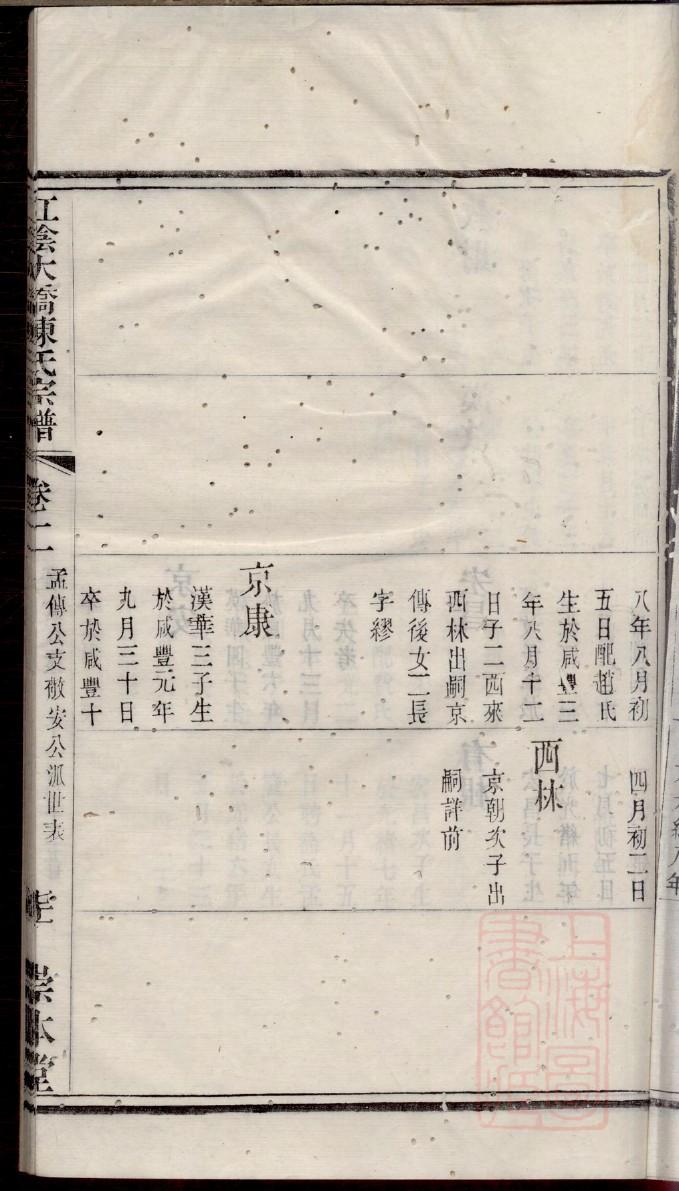 八年八月初
五日配趙氏
生於咸豐三
年八月十二
日子二西來
西林出嗣京
傳後女二長
字繆
京康
漢華三子生
於咸豐元年
九月三十日
卒於咸豐十
四月初二日
西林
京朝次子出
嗣詳前
江陰大橋陳氏宗譜
卷十二
孟傳公支敬安公派世表
崇本堂
上海圖書館藏